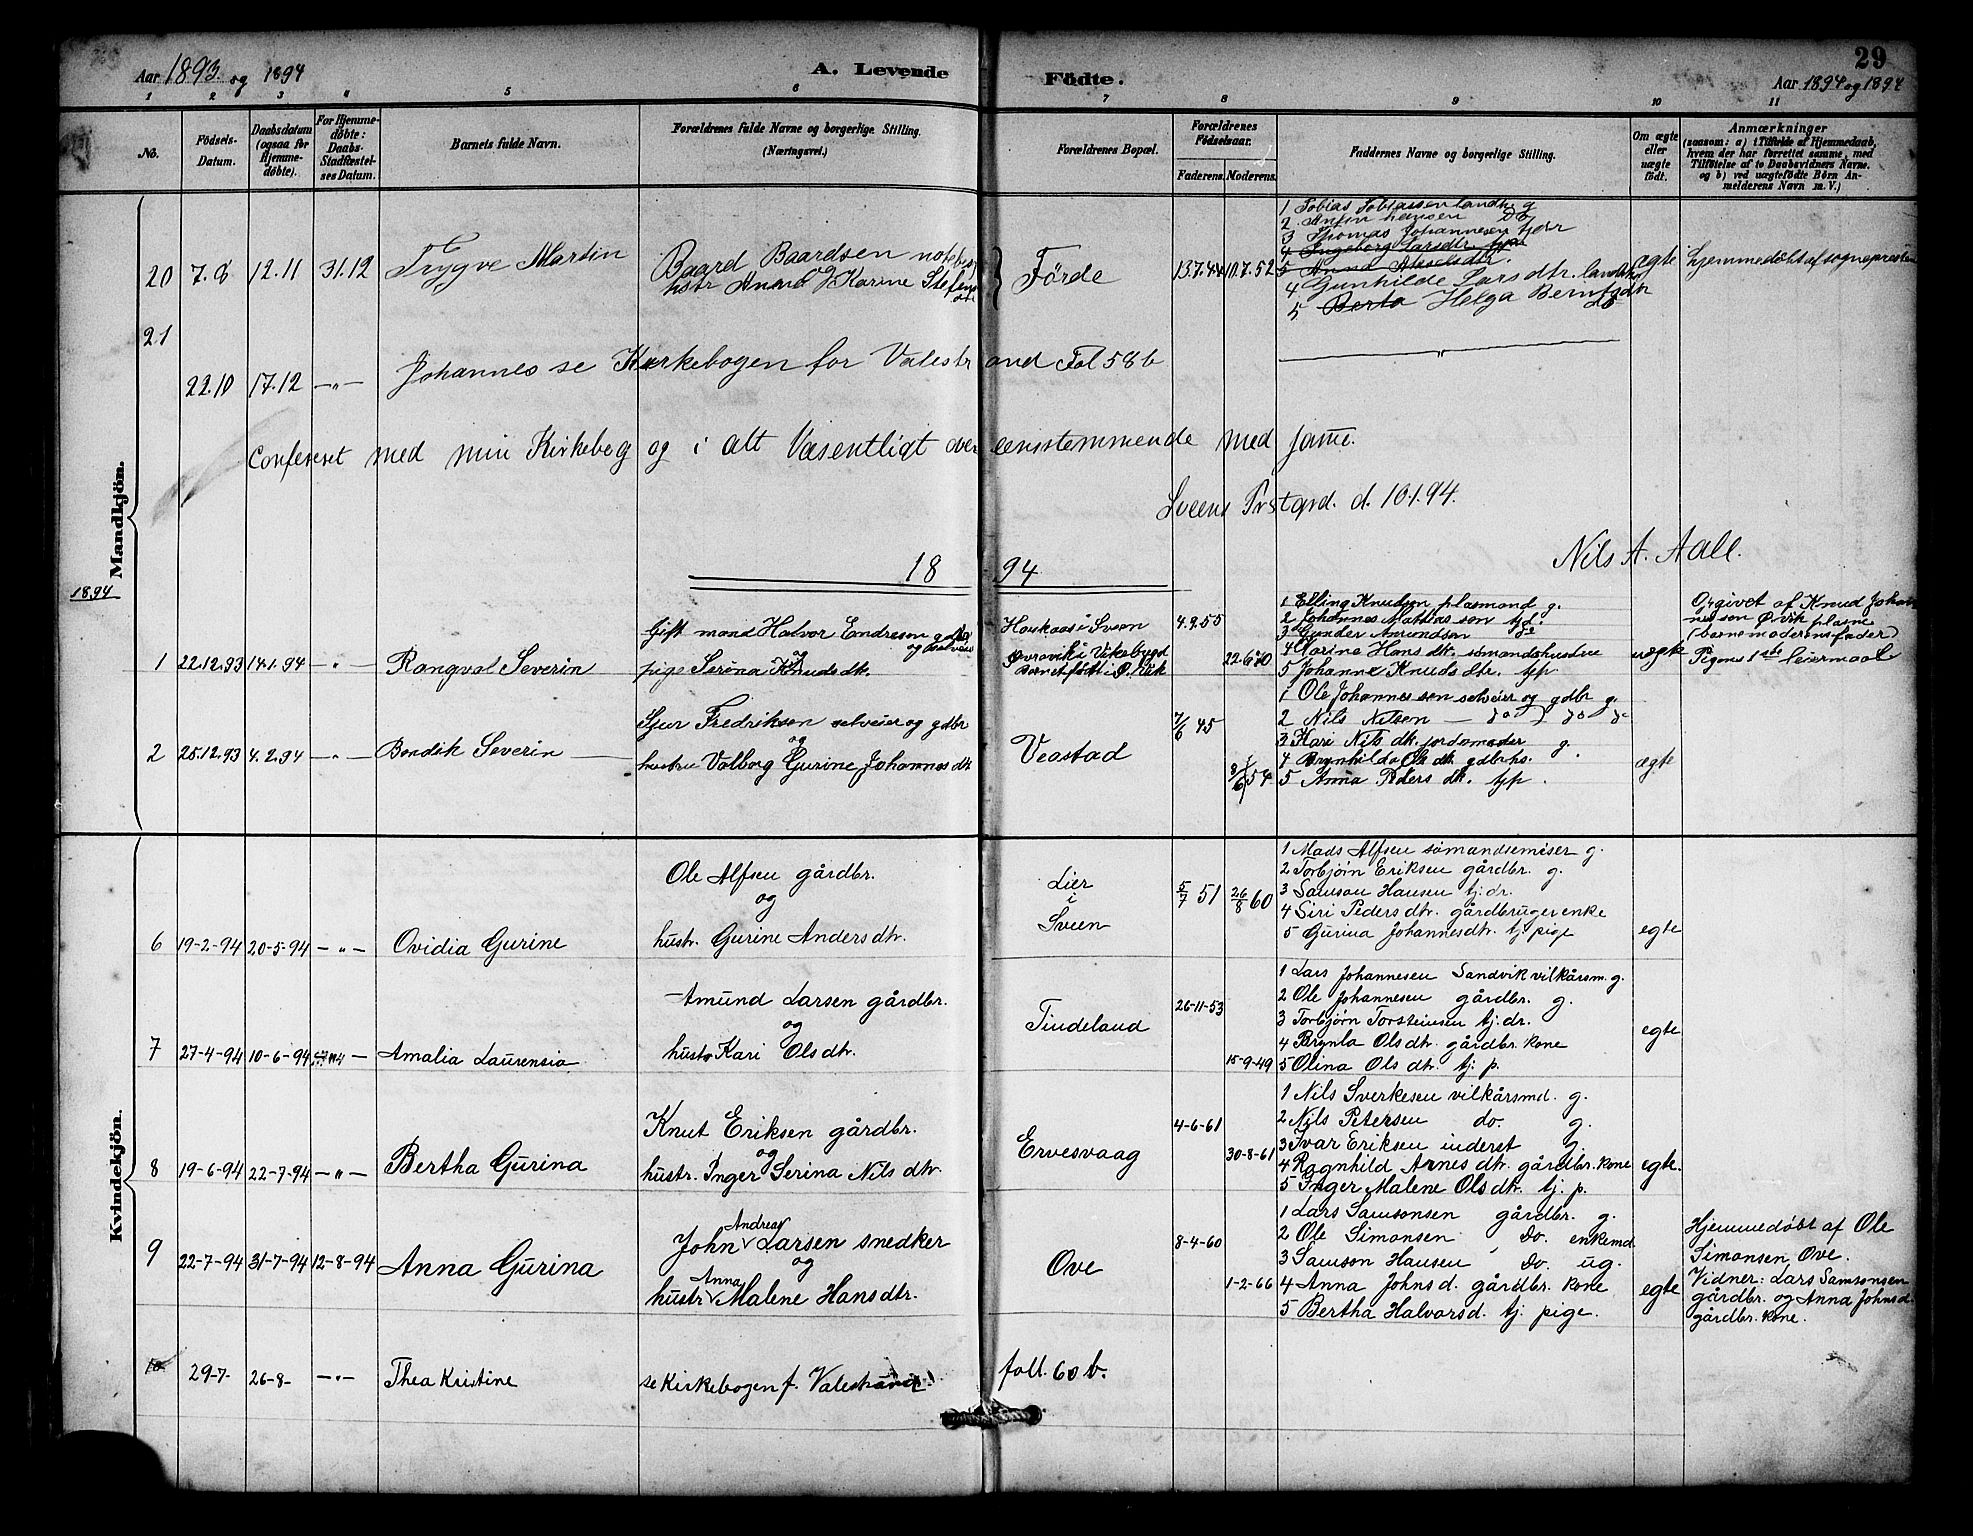 Aar 1893 og 1894
A. Levende Födte.
29
Aar 1894 og 1894
1 2 3 4 5 6 7 8 9 10 11
No.
Födsels-Datum.
Daabsdatum (ogsaa for Hjemmedøbte).
For Hjemmedøbte: Daabs-Stadfæstelses Datum.
Barnets fulde Navn.
Forældrenes fulde Navne og borgerlige Stilling. (Næringsvei.)
Forældrenes Bopæl.
Forældrenes Födselsaar.
Faderens. Moderens.
Faddernes Navne og borgerlige Stilling.
Om ægte eller uægte födt.
Anmærkninger
(saasom: a) i Tilfælde af Hjemmedaab, hvem der har forrettet samme, med Tilföielse af to Daabsvidners Navne. og b) ved uægtefödte Börn Anmelderens Navn m. V.)
Mandkjön.
20 7.8 12.11 31.12 Trygve Martin
Baard Baardsen notebas
og
hstr Anna Karine Stefens
dtr
Förde
13.7.44 10.7.52
1 Tobias Tobiassen landh. g
2. Anfin hansen do
3 Thomas Johannesen tjdr
4 Ingeborg Larsdtr. tjp
5 Anna Akselsdtr.
4 Gunhilde Larsdtr. landh
5 Berta Helga Berntsdtr
do
egte
hjemmedøbt af sognepresten
21
22.10 17.12 —"— Johannes se Kirkebogen for Valestrand Fol 58b
Confereret med min Kirkebog og i alt Væsentligt overensstemmende med samme.
Sveens Prstgrd. d. 10.1.94.
Nils A. Aall.
1894
1894
1 22.12.93 14.1.94 —"— Rangval Severin
Gift mand Halvor Endresen gdbr
og selveier
og
pige Serina Knudsdk.
Haukaas i Sveen
Øvravik i Vikebygd
Barnet født i Ø.Vik
4.9.55
22.6.70
1 Elling Knudsen plasmand g.
2 Johannes Mathias son tjd.
3 Gunder Amundson do
4 Karine Hans dk. sømandshustru
5 Johanne Knuds dtr. tjp
uægte
Opgivet af Knud Johan
nesson Ø.vik plasmd
(barnemoderens fader)
Pigens 1ste leiermaal
2 25.12.93 4.2.94 —"— Bendik Severin
Sjur Fredrikson selveier og gdbr
og
hustru Valborg Gurine Johannes dk
Vestad
7/6 45
8/6 54
1 Ole Johannes son selveier og gdbr g.
2 Nils Nilsen — do — do do
3 Kari Nils dk. jordemoder g.
4 Brynhilda Ole dk gdbrhs.
5 Anna Peders dk. tjp.
ægte
Kvindekjön.
6 19-2-94 20-5-94 —"— Ovidia Gurine
Ole Alfsen gårdbr.
og
hustr. Gurine Andersdtr.
Lier
i
Sveen
5/7 51 26/8 60
1 Mads Alfsen sømandsemiser g.
2 Torbjørn Eriksen gårdbr. g.
3 Samson Hansen tj.dr.
4 Siri Pedersdtr. gårdbrugerenke
5 Gurina Johannesdtr. tj. pige
egte
7 27-4-94 10-6-94 Amalia Laurensia
Amund Larsen gårdbr.
og
hustr Kari Olsdtr.
Tindeland
26-11-53
15-9-49
1 Lars Johannesen Sandvik vilkårsm. g.
2 Ole Johannesen gårdbr. g.
3 Torbjørn Torsteinsen tj. dr.
4 Brynla Olsdtr. gårdbr. kone
5 Olina Olsdtr. tj. p.
egte
8 19-6-94 22-7-94 —"— Bertha Gurina
Knut Eriksen gårdbr.
og
hustr. Inger Serina Nilsdtr.
Ervesvaag
4-6-61
30-8-61
1 Nils Sverkesen vilkårsmd. g.
2 Nils Petersen do. g.
3 Ivar Eriksen inderst g.
4 Ragnhild Arnesdtr. gårdbr. kone
5 Inger Malene Olsdtr. tj. p.
egte.
9 22-7-94 31-7-94 12-8-94 Anna Gurina
Andreas
John Larsen snedker
og
Anna
hustr Malene Hansdtr.
Ove
8-4-60
1-2-66
1 Lars Samsonsen gårdbr. g.
2 Ole Simonsen do. enkemd
3 Samson Hansen do. ug.
4 Anna Johnsd. gårdbr. kone
5 Bertha Halvorsd. tj. pige.
egte
Hjemmedøbt af Ole
Simonsen, Ove.
Vidner: Lars Samsonsen
gårdbr. og Anna Johnsd.
gårdbr. kone.
10 29-7- 26-8- —"— Thea Kristine se Kirkebogen f. Valestrand foll. 60 b.